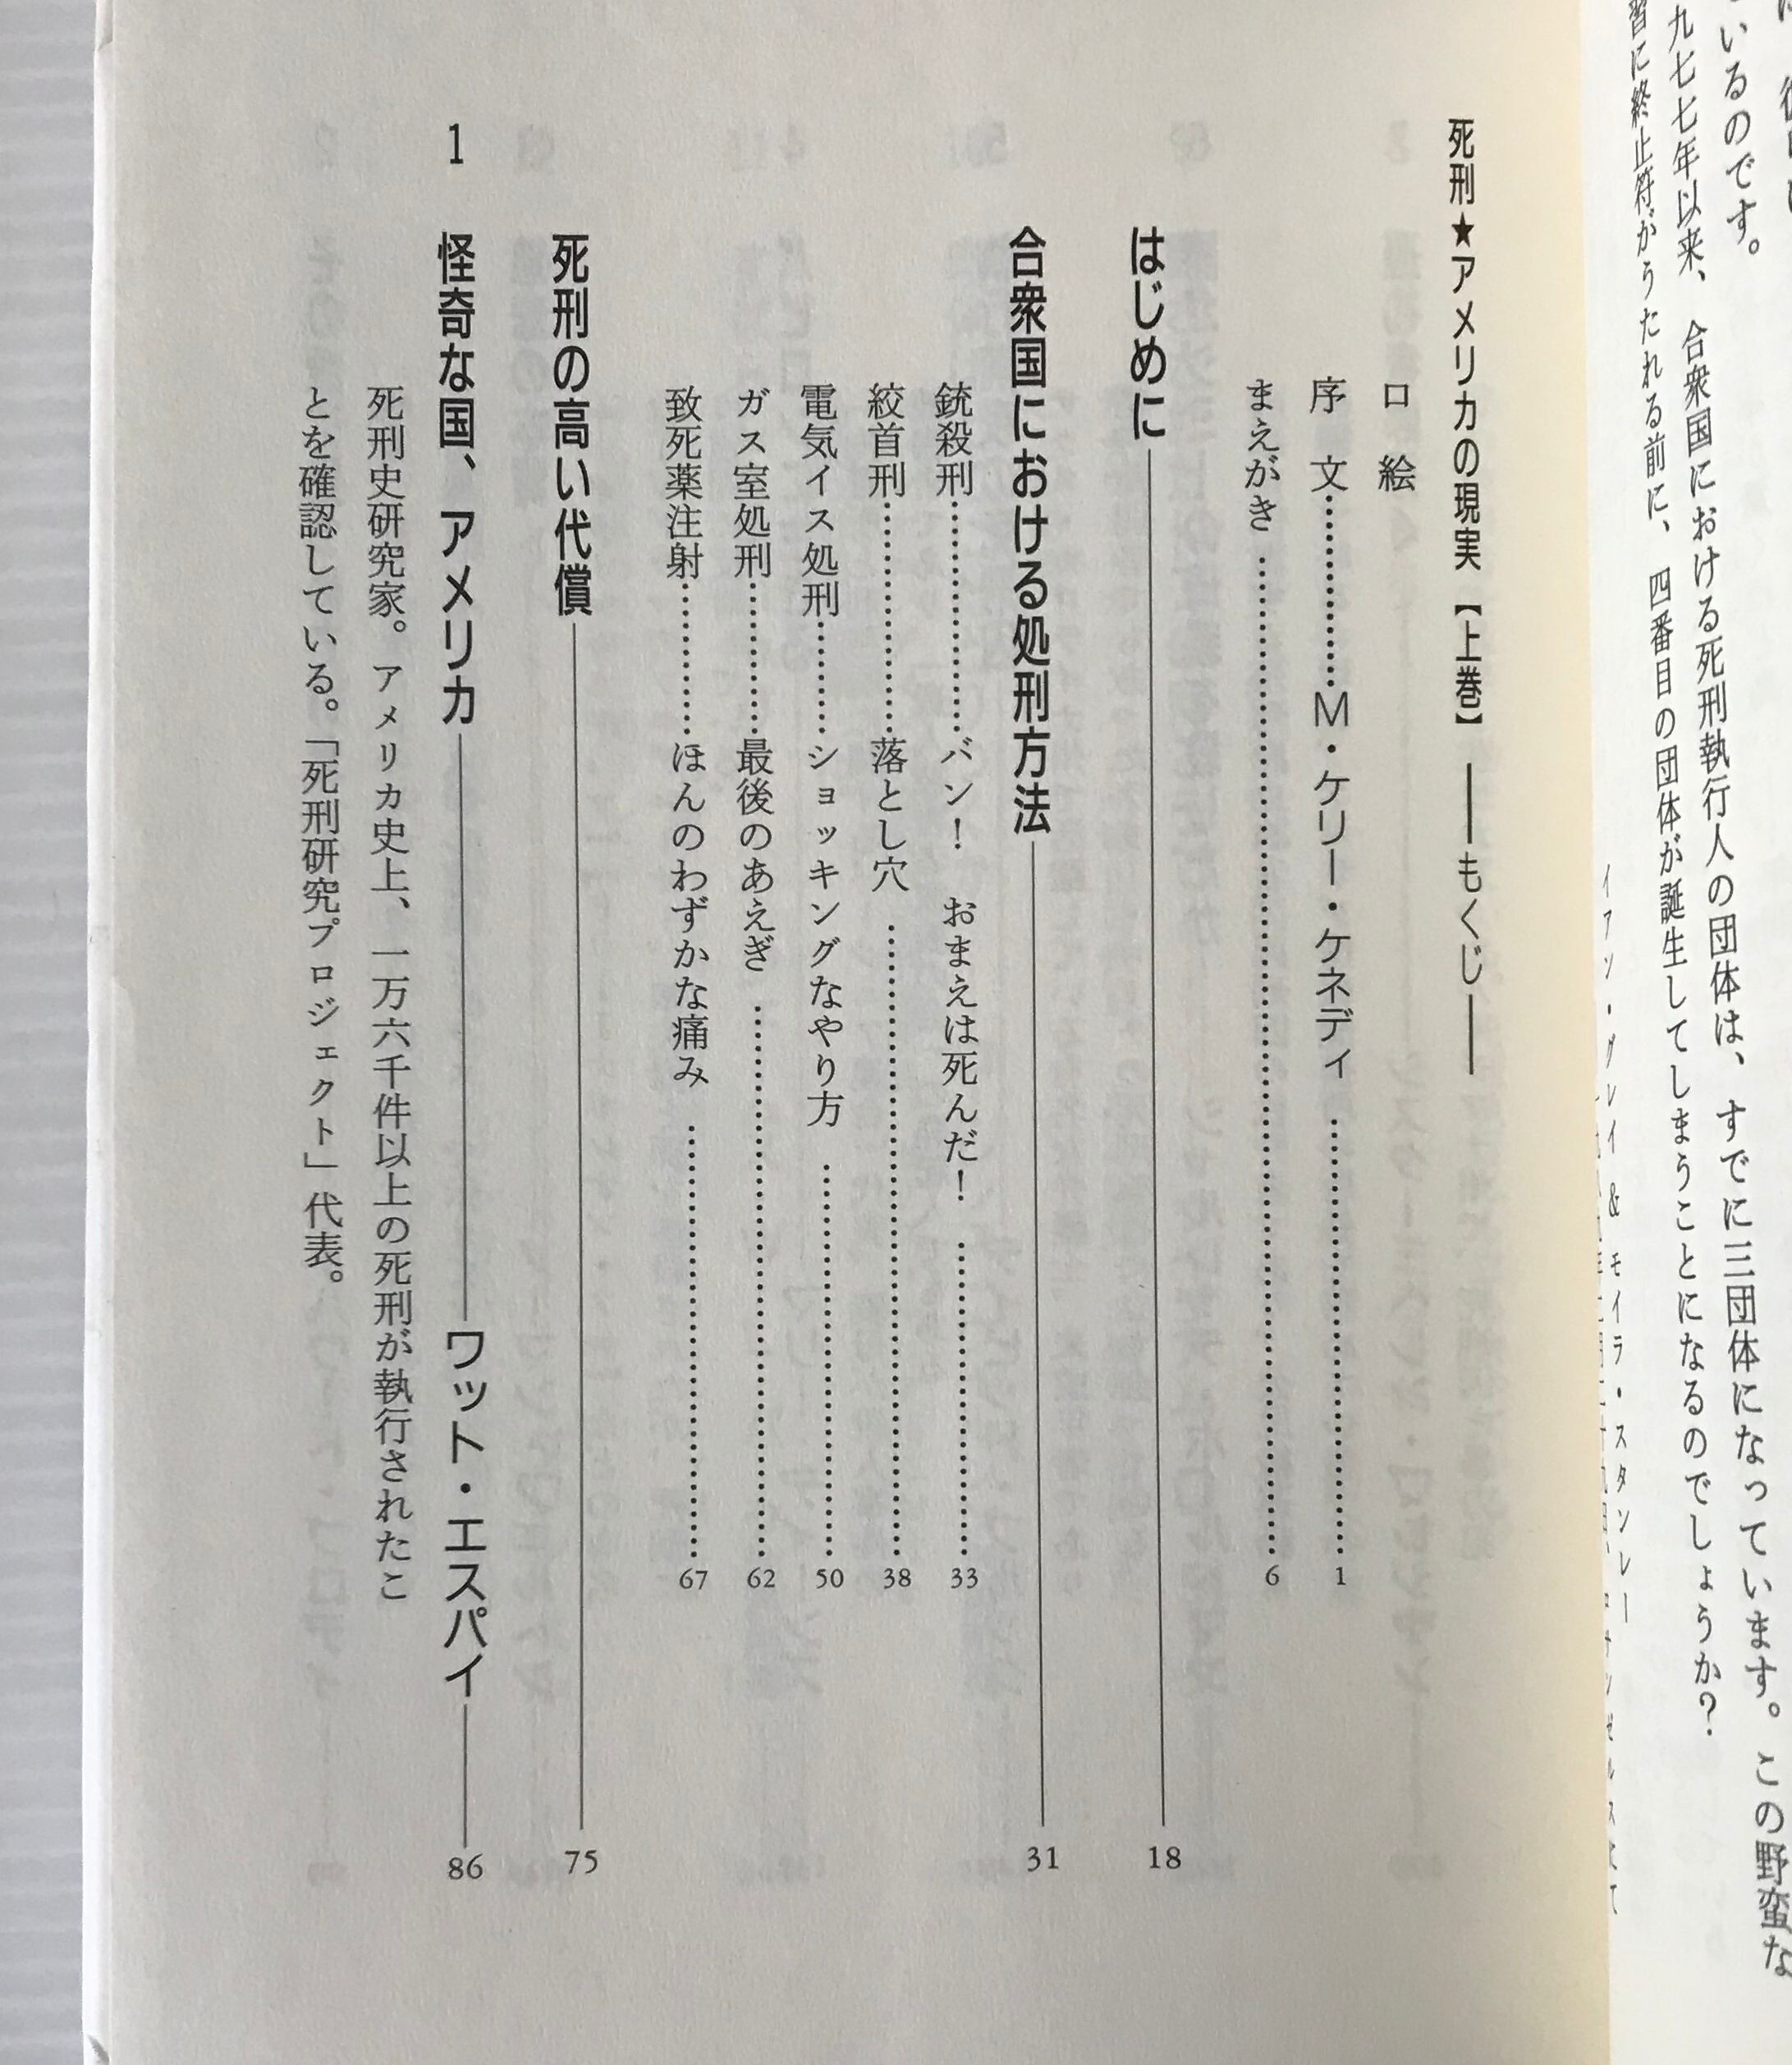 いるのです。
九七七年以来、合衆国における死刑執行人の団体は、すでに三団体になっています。この野蛮な
習に終止符がうたれる前に、四番目の団体が誕生してしまうことになるのでしょうか？
イアン・グレイ & モイラ・スタンレー
死刑★アメリカの現実【上巻】――もくじ――
口　絵
序　文………………M・ケリー・ケネディ………………1
まえがき………………6
はじめに――18
合衆国における処刑方法――31
銃殺刑………………バン！　おまえは死んだ！………………33
絞首刑………………落とし穴………………38
電気イス処刑………ショッキングなやり方………………50
ガス室処刑…………最後のあえぎ………………62
致死薬注射…………ほんのわずかな痛み………………67
死刑の高い代償――75
1　怪奇な国、アメリカ――ワット・エスパイ――86
死刑史研究家。アメリカ史上、一万六千件以上の死刑が執行されたこ
とを確認している。「死刑研究プロジェクト」代表。